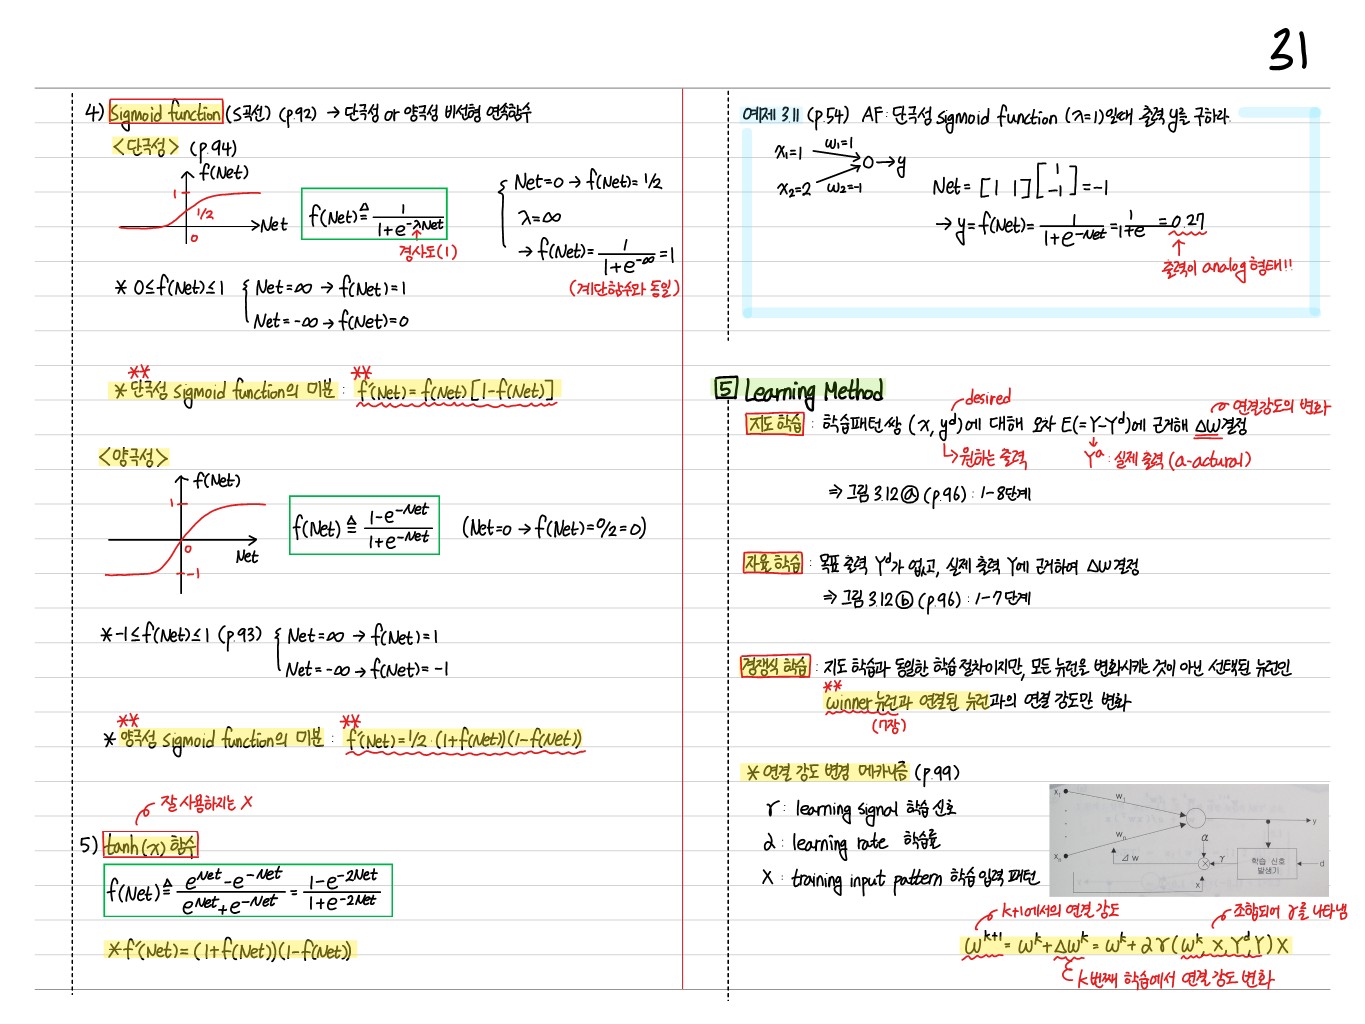 31
4) Sigmoid function (S곡선) (p.92) → 단극성 or 양극성 비선형 연속함수
<단극성> (p.94)
f(Net)
1
1/2
0
Net
f(Net) ≜ 1/(1+e^-λNet)
경사도(1)
Net=0 → f(Net)=1/2
λ=∞
→ f(Net)= 1/(1+e^-∞) =1
(계단함수와 동일)
* 0≤f(Net)≤1 { Net=∞ → f(Net)=1
Net=-∞ → f(Net)=0
**
**
* 단극성 sigmoid function의 미분 : f'(Net)=f(Net)[1-f(Net)]
<양극성>
f(Net)
1
0
Net
-1
f(Net) ≜ (1-e^-Net)/(1+e^-Net) (Net=0 → f(Net)=0/2=0)
* -1≤f(Net)≤1 (p.93) { Net=∞ → f(Net)=1
Net=-∞ → f(Net)=-1
**
**
* 양극성 sigmoid function의 미분 : f'(Net)=1/2·(1+f(Net))(1-f(Net))
잘 사용하지는 X
5) tanh(x) 함수
f(Net) ≜ (e^Net-e^-Net)/(e^Net+e^-Net) = (1-e^-2Net)/(1+e^-2Net)
* f'(Net)=(1+f(Net))(1-f(Net))
예제 3.11 (p.54) AF: 단극성 sigmoid function (λ=1)일때 출력 y를 구하라.
x₁=1 w₁=1
0 → y
x₂=2 w₂=-1
Net = [1 1] [1 -1] = -1
→ y=f(Net)= 1/(1+e^-Net) = 1/(1+e) = 0.27
출력이 analog 형태!!
5 Learning Method
desired
연결강도의 변화
지도 학습 : 학습패턴 쌍 (x, y^d)에 대해 오차 E(=Y-Y^d)에 근거해 ΔW결정
원하는 출력
Y^a : 실제 출력 (a-actural)
⇒ 그림 3.12ⓐ (p.96) : 1-8단계
자율 학습 : 목표 출력 Y^d가 없고, 실제 출력 Y에 근거하여 ΔW결정
⇒ 그림 3.12ⓑ (p.96) : 1-7단계
경쟁식 학습 : 지도 학습과 동일한 학습 절차이지만, 모든 뉴런을 변화시키는 것이 아닌 선택된 뉴런인
**
winner 뉴런과 연결된 뉴런과의 연결 강도만 변화
(7장)
* 연결 강도 변경 메카니즘 (p.99)
γ : learning signal 학습 신호
α : learning rate 학습률
X : training input pattern 학습 입력 패턴
x₁
w₁
xₙ
wₙ
y
α
Δw
γ
x
학습 신호
발생기
d
k+1에서의 연결 강도
조합되어 γ를 나타냄
w^k+1 = w^k + Δw^k = w^k + αγ(w^k, X, Y^d, Y) X
k번째 학습에서 연결 강도 변화